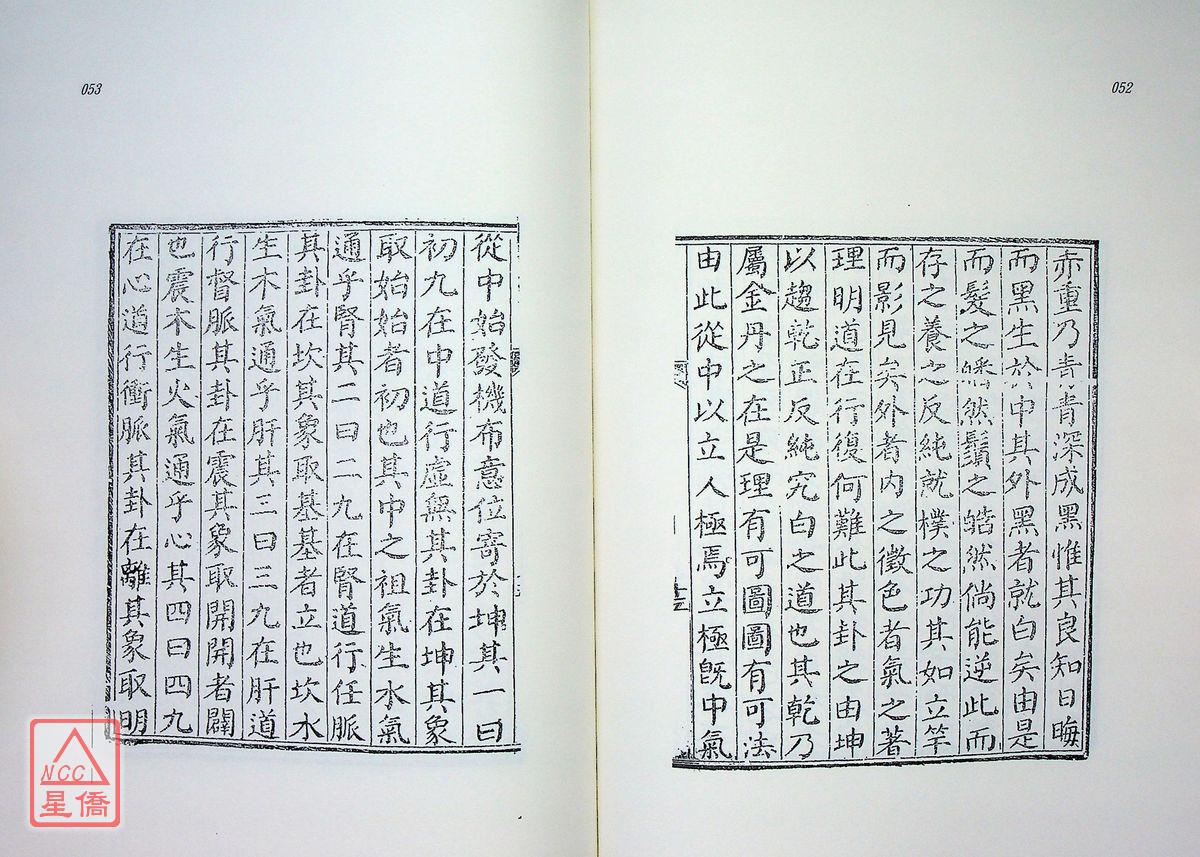 052
赤重乃青青深成黑惟其良知日晦
而黑生於中其外黑者就白矣由是
而髮之皤然鬚之皓然倘能逆此而
存之養之反純就樸之功其如立竿
而影見矣外者內之徵色者氣之著
理明道在行復何難此其卦之由坤
以趨乾正反純究白之道也其乾乃
屬金丹之在是理有可圖圖有可法
由此從中以立人極焉立極既中氣
053
從中始發機布意位寄於坤其一曰
初九在中道行虛無其卦在坤其象
取始始者初也其中之祖氣生水氣
通乎腎其二曰二九在腎道行任脈
其卦在坎其象取基基者立也坎水
生木氣通乎肝其三曰三九在肝道
行督脈其卦在震其象取開開者闢
也震木生火氣通乎心其四曰四九
在心道行衝脈其卦在離其象取明
NCC
星僑